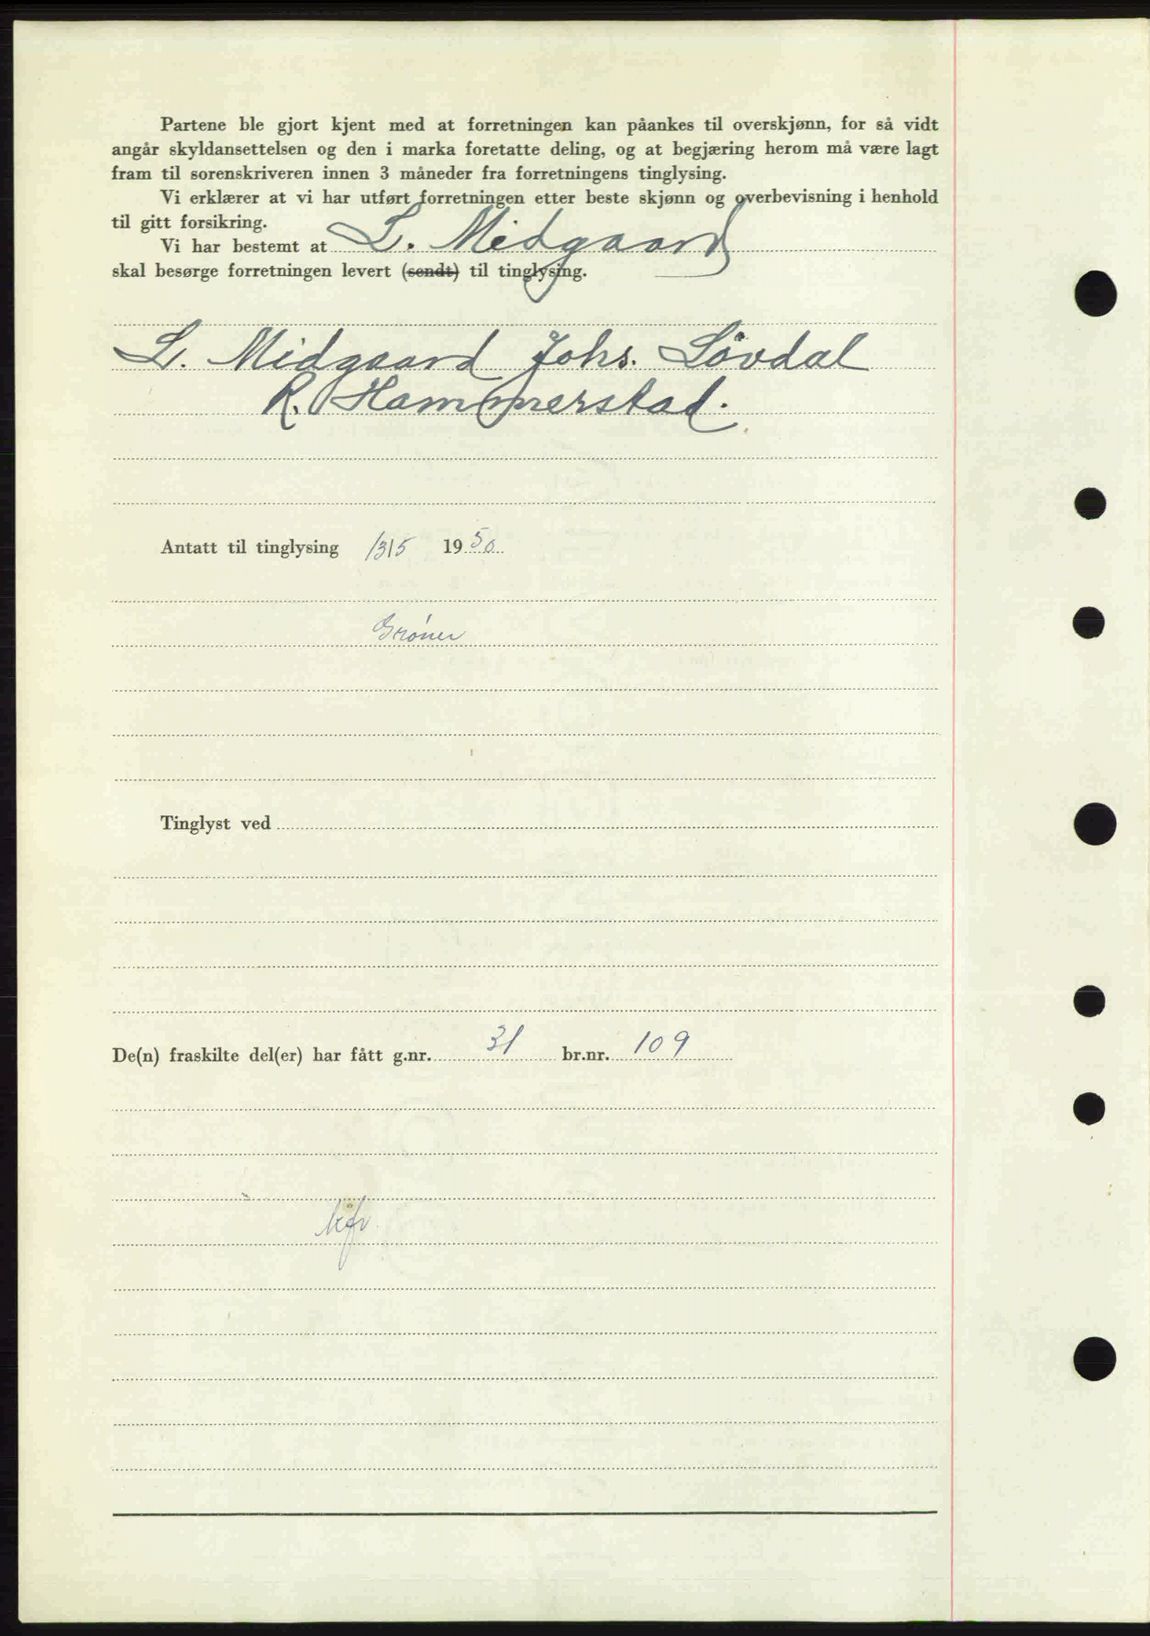 Partene ble gjort kjent med at forretningen kan påankes til overskjønn, for så vidt
angår skyldansettelsen og den i marka foretatte deling, og at begjæring herom må være lagt
fram til sorenskriveren innen 3 måneder fra forretningens tinglysing.
Vi erklærer at vi har utført forretningen etter beste skjønn og overbevisning i henhold
til gitt forsikring.
Vi har bestemt at L. Midgaard
skal besørge forretningen levert (sendt) til tinglysing.
L. Midgaard Johs. Løvdal
R. Hammerstad.
Antatt til tinglysing 13/5 1950
Grøner
Tinglyst ved
De(n) fraskilte del(er) har fått g.nr. 31 br.nr. 109